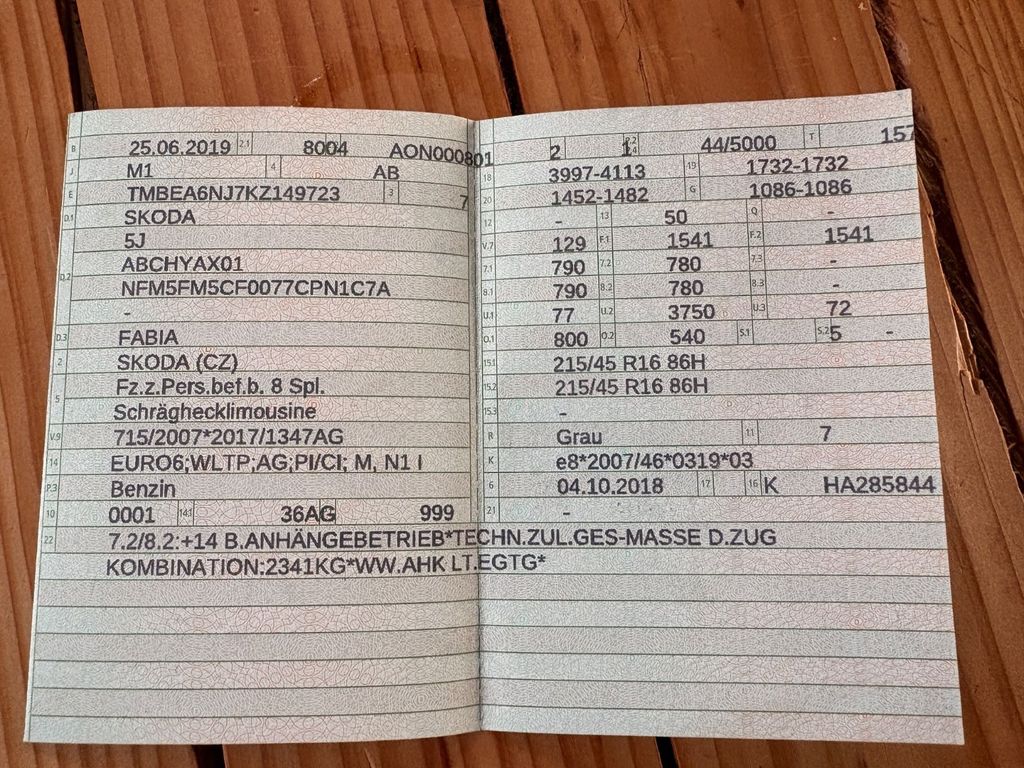 B 25.06.2019 2.1 8004 AON000801
J M1 4 AB
E TMBEA6NJ7KZ149723 3 7
D.1 SKODA
5J
D.2 ABCHYAX01
NFM5FM5CF0077CPN1C7A
-
D.3 FABIA
2 SKODA (CZ)
5 Fz.z.Pers.bef.b. 8 Spl.
Schräghecklimousine
V.9 715/2007*2017/1347AG
14 EURO6;WLTP;AG;PI/CI; M, N1 I
P.3 Benzin
10 0001 14.1 36AG 999
2 1 44/5000 T 157
18 3997-4113 19 1732-1732
20 1452-1482 G 1086-1086
12 - 13 50 Q -
V.7 129 F.1 1541 F.2 1541
7.1 790 7.2 780 7.3 -
8.1 790 8.2 780 8.3 -
U.1 77 U.2 3750 U.3 72
O.1 800 O.2 540 S.1 5 S.2 -
15.1 215/45 R16 86H
15.2 215/45 R16 86H
15.3 -
R Grau 11 7
K e8*2007/46*0319*03
6 04.10.2018 17 16 K HA285844
21 -
22 7.2/8.2:+14 B.ANHÄNGEBETRIEB*TECHN.ZUL.GES-MASSE D.ZUG
KOMBINATION:2341KG*WW.AHK LT.EGTG*